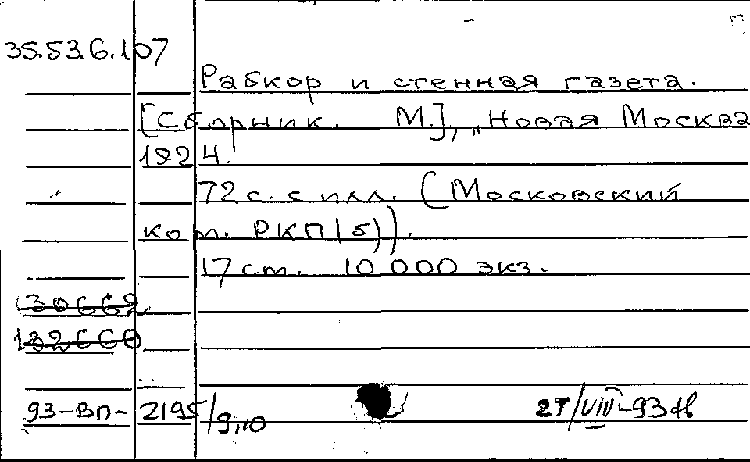 35.53.6.107
Рабкор и стенная газета.
[Сборник. М.], "Новая Москва
1924.
72 с. с илл. (Московский
ком. РКП(б)).
17 см. 10 000 экз.
30662
132660
93-ВП-2195/9,10
27/VIII-93